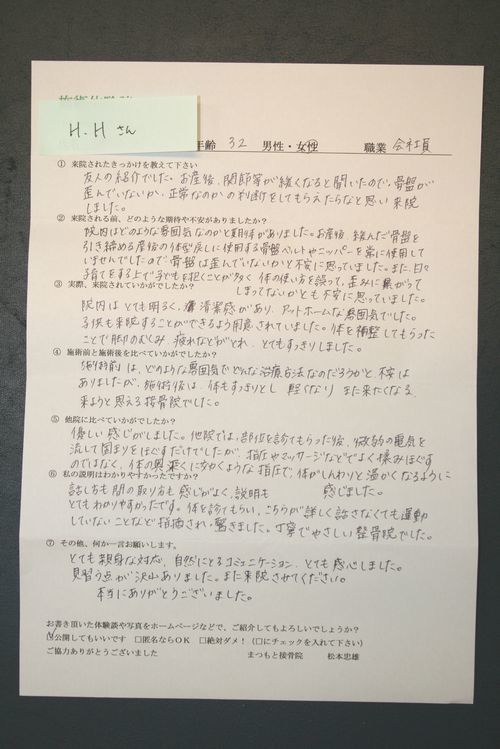 H.H さん
年齢 32 男性・女性 職業 会社員
① 来院されたきっかけを教えて下さい
友人の紹介でした。お産後、関節等が緩くなると聞いたので、骨盤が
歪んでいないか、正常なのかの判断をしてもらえたらなと思い来院
しました。
② 来院される前、どのような期待や不安がありましたか?
院内はどのような雰囲気なのかと期待がありました。お産後、緩んだ骨盤を
引き締める産後の体型戻しに使用する骨盤ベルトやニッパーを常に使用して
いませんでしたので、骨盤は歪んでいないかと不安に思っていました。また、日々
子育てをする上で子どもを抱くことが多く、体の使い方を誤って、歪みに繋がって
しまってないかとも不安に思っていました。
③ 実際、来院されていかがでしたか?
院内は とても明るく、清潔感があり、アットホームな雰囲気でした。
子供も来院することができるよう用意されていました。体を補整してもらった
ことで肘のむくみ 疲れなどがとれ、とてもすっきりしました。
④ 施術前と施術後を比べていかがでしたか?
施術前は、どのような雰囲気でどんな治療方法なのだろうかと、不安は
ありましたが、施術後は、体もすっきりとし 軽くなり また来たくなる、
来ようと思える接骨院でした。
⑤ 他院に比べていかがでしたか?
優しい感じがしました。他院では、部位を診てもらった後、微弱の電気を
流して固まりをほぐすだけでしたが、指圧やマッサージなどでよく揉みほぐす
のではなく、体の奥深くに届くような指圧で、体がじんわりと温かくなるように
感じました。
⑥ 私の説明はわかりやすかったですか?
話し方も間の取り方も感じがよく、説明も
とてもわかりやすかったです。体を診てもらい、こちらが詳しく話さなくても運動
していないことなど指摘され、驚きました。丁寧でやさしい整骨院でした。
⑦ その他、何か一言お願いします。
とても親身な対応、自然にとるコミュニケーション、とても感心しました。
見習う点が沢山ありました。また来院させてください。
本当にありがとうございました。
お書き頂いた体験談や写真をホームページなどで、ご紹介してもよろしいでしょうか?
☑公開してもいいです □匿名ならOK □絶対ダメ! (□にチェックを入れて下さい)
ご協力ありがとうございました まつもと接骨院 松本忠雄